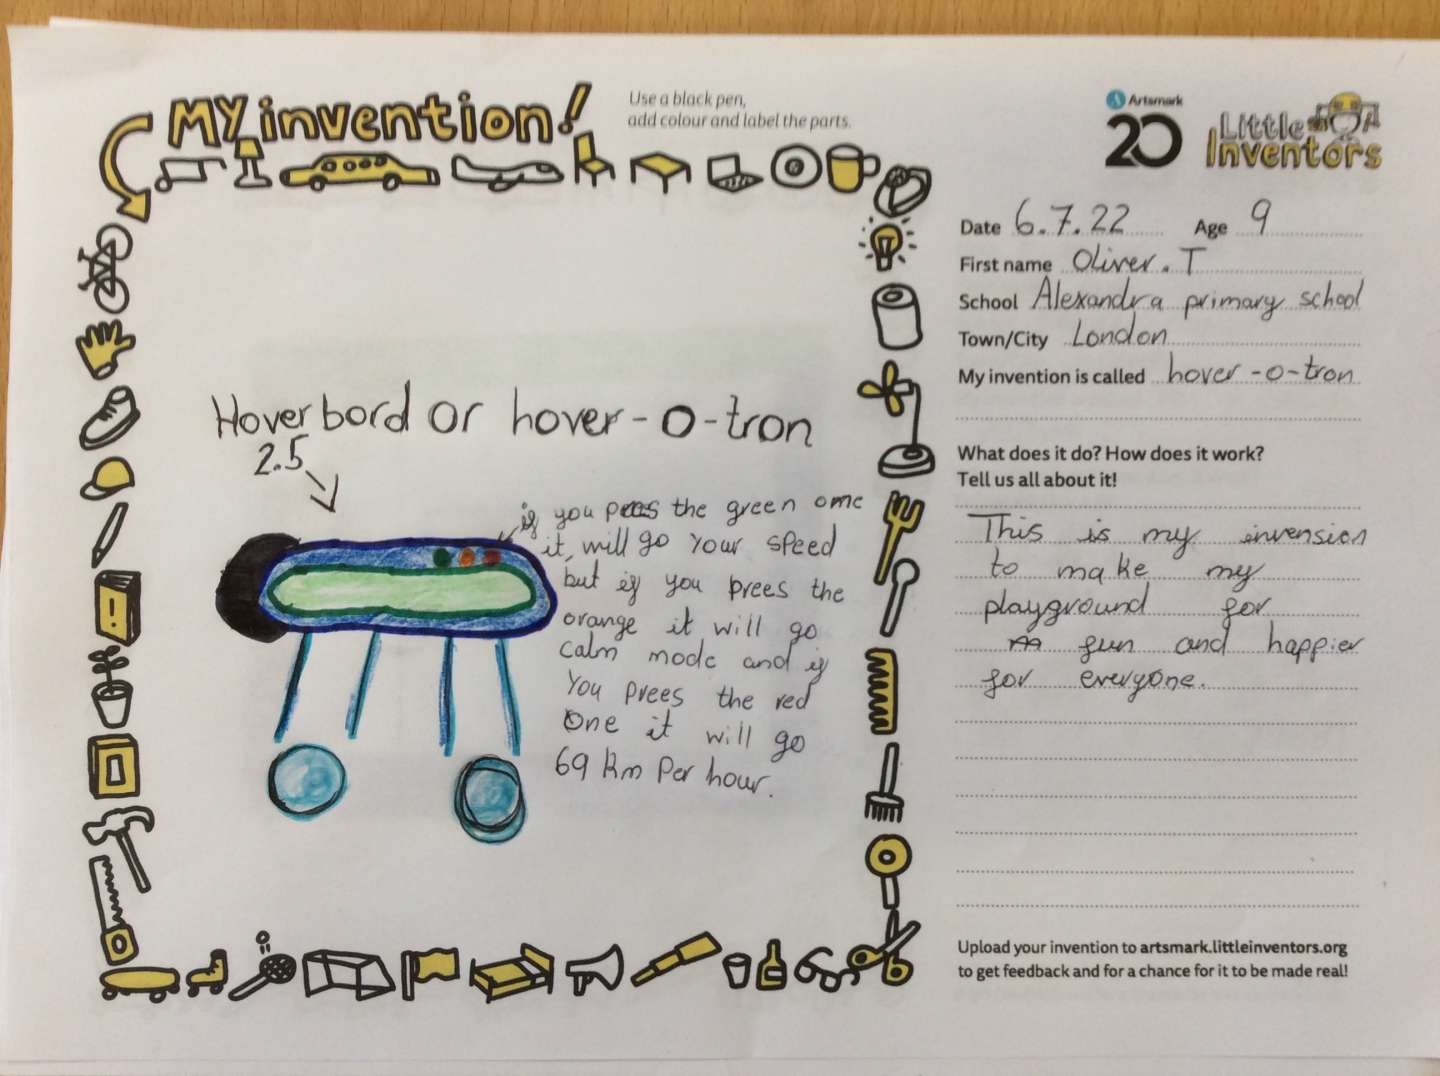 My invention!
Use a black pen,
add colour and label the parts.
Artsmark
20
Little
Inventors
Date 6.7.22 Age 9
First name Oliver.T
School Alexandra primary school
Town/City London
My invention is called hover-o-tron
What does it do? How does it work?
Tell us all about it!
This is my invension
to make my
playground for
fun and happier
for everyone.
Hoverbord or hover-o-tron
2.5
if you prees the green ome
it will go your speed
but if you prees the
orange it will go
calm mode and if
you prees the red
one it will go
69 km per hour.
Upload your invention to artsmark.littleinventors.org
to get feedback and for a chance for it to be made real!